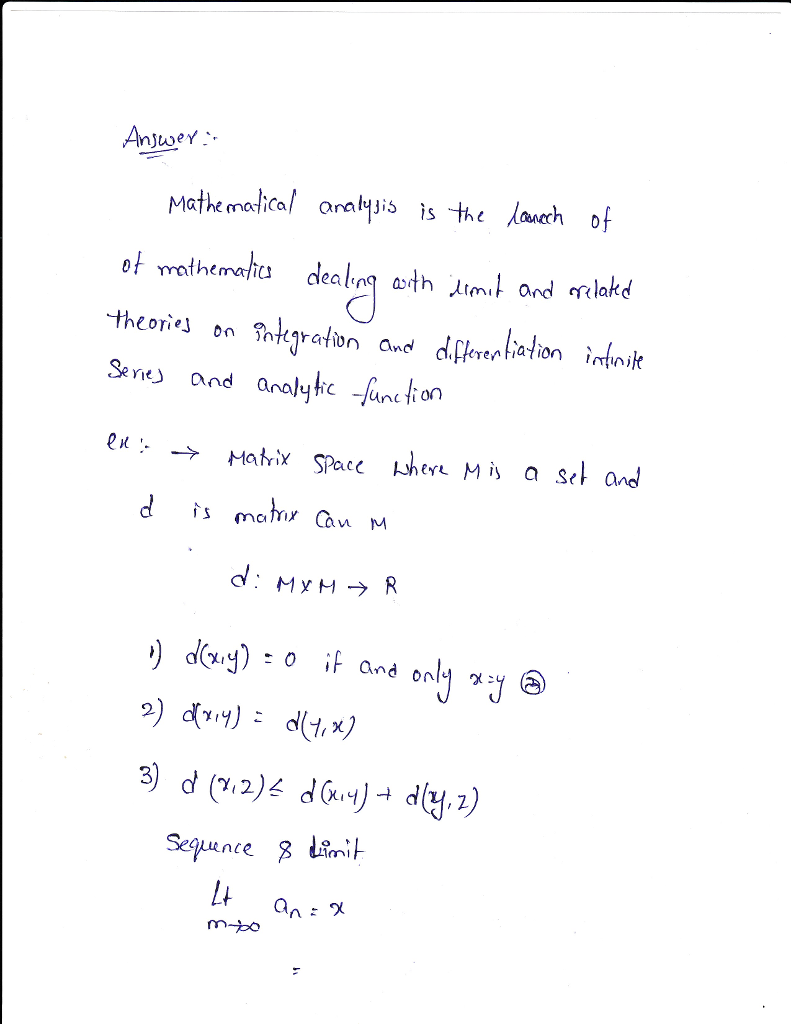 Answer :-
Mathematical analysis is the of
of mathematics dealing with limit and related
theories on integration and differentiation infinite
Series and analytic function
ex :- → Matrix Space where M is a set and
d is matrix M
d: M×M → R
1) d(x,y) = 0 if and only x=y
2) d(x,y) = d(y,x)
3) d (x,z) ≤ d(x,y) + d(y,z)
Sequence & Limit
Lt an = x
n→∞
=